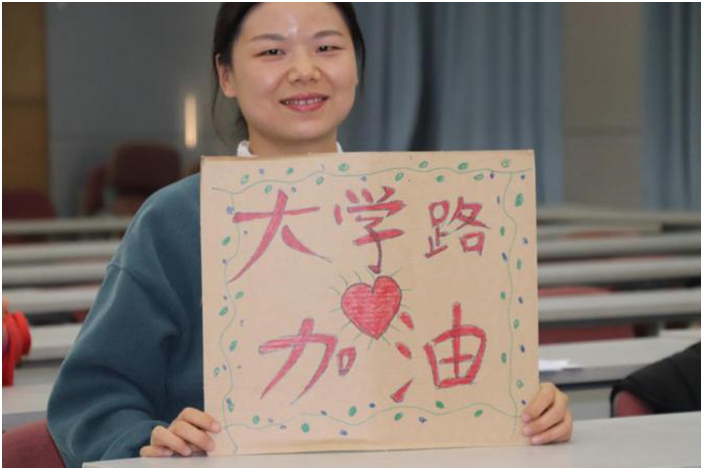 大学路
加油